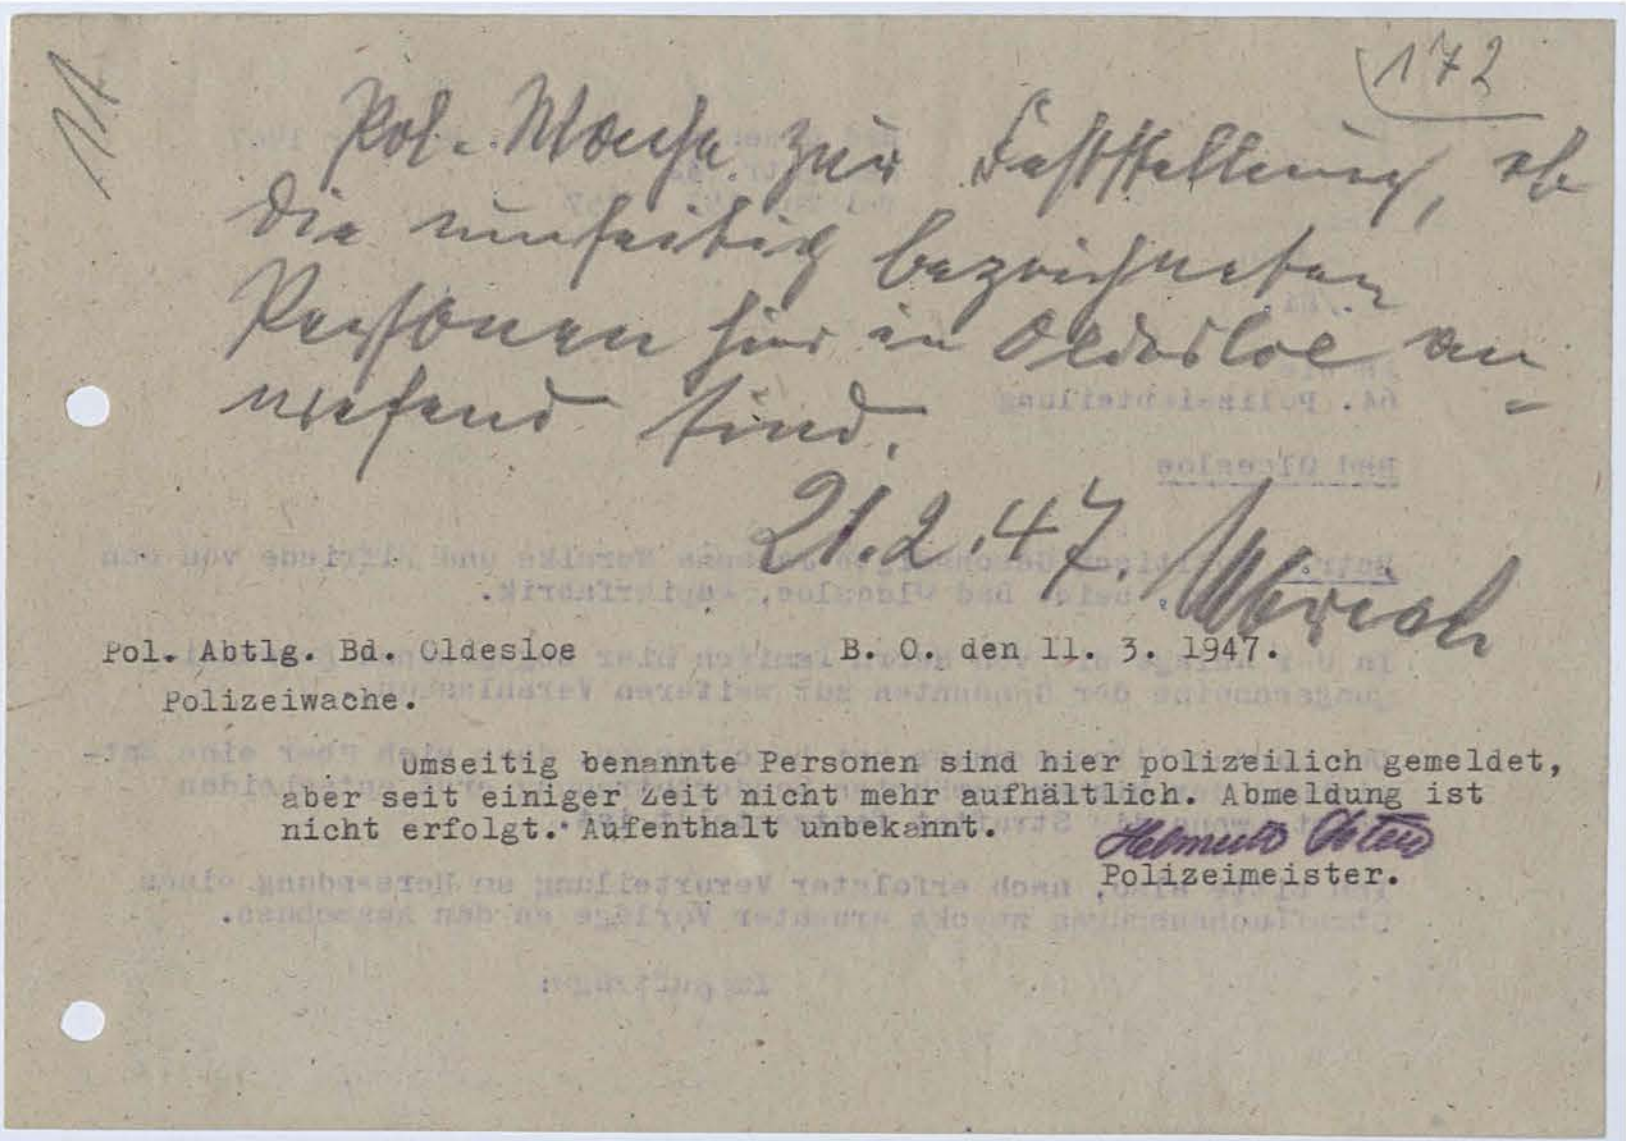 172
Pol. Wache zur Feststellung, ob
die umseitig bezeichneten
Personen hier in Oldesloe an-
wesend sind.
21.2.47.
Pol. Abtlg. Bd. Oldesloe B. O. den 11. 3. 1947.
Polizeiwache.
Umseitig benannte Personen sind hier polizeilich gemeldet,
aber seit einiger Zeit nicht mehr aufhältlich. Abmeldung ist
nicht erfolgt. Aufenthalt unbekannt.
Helmuth
Polizeimeister.